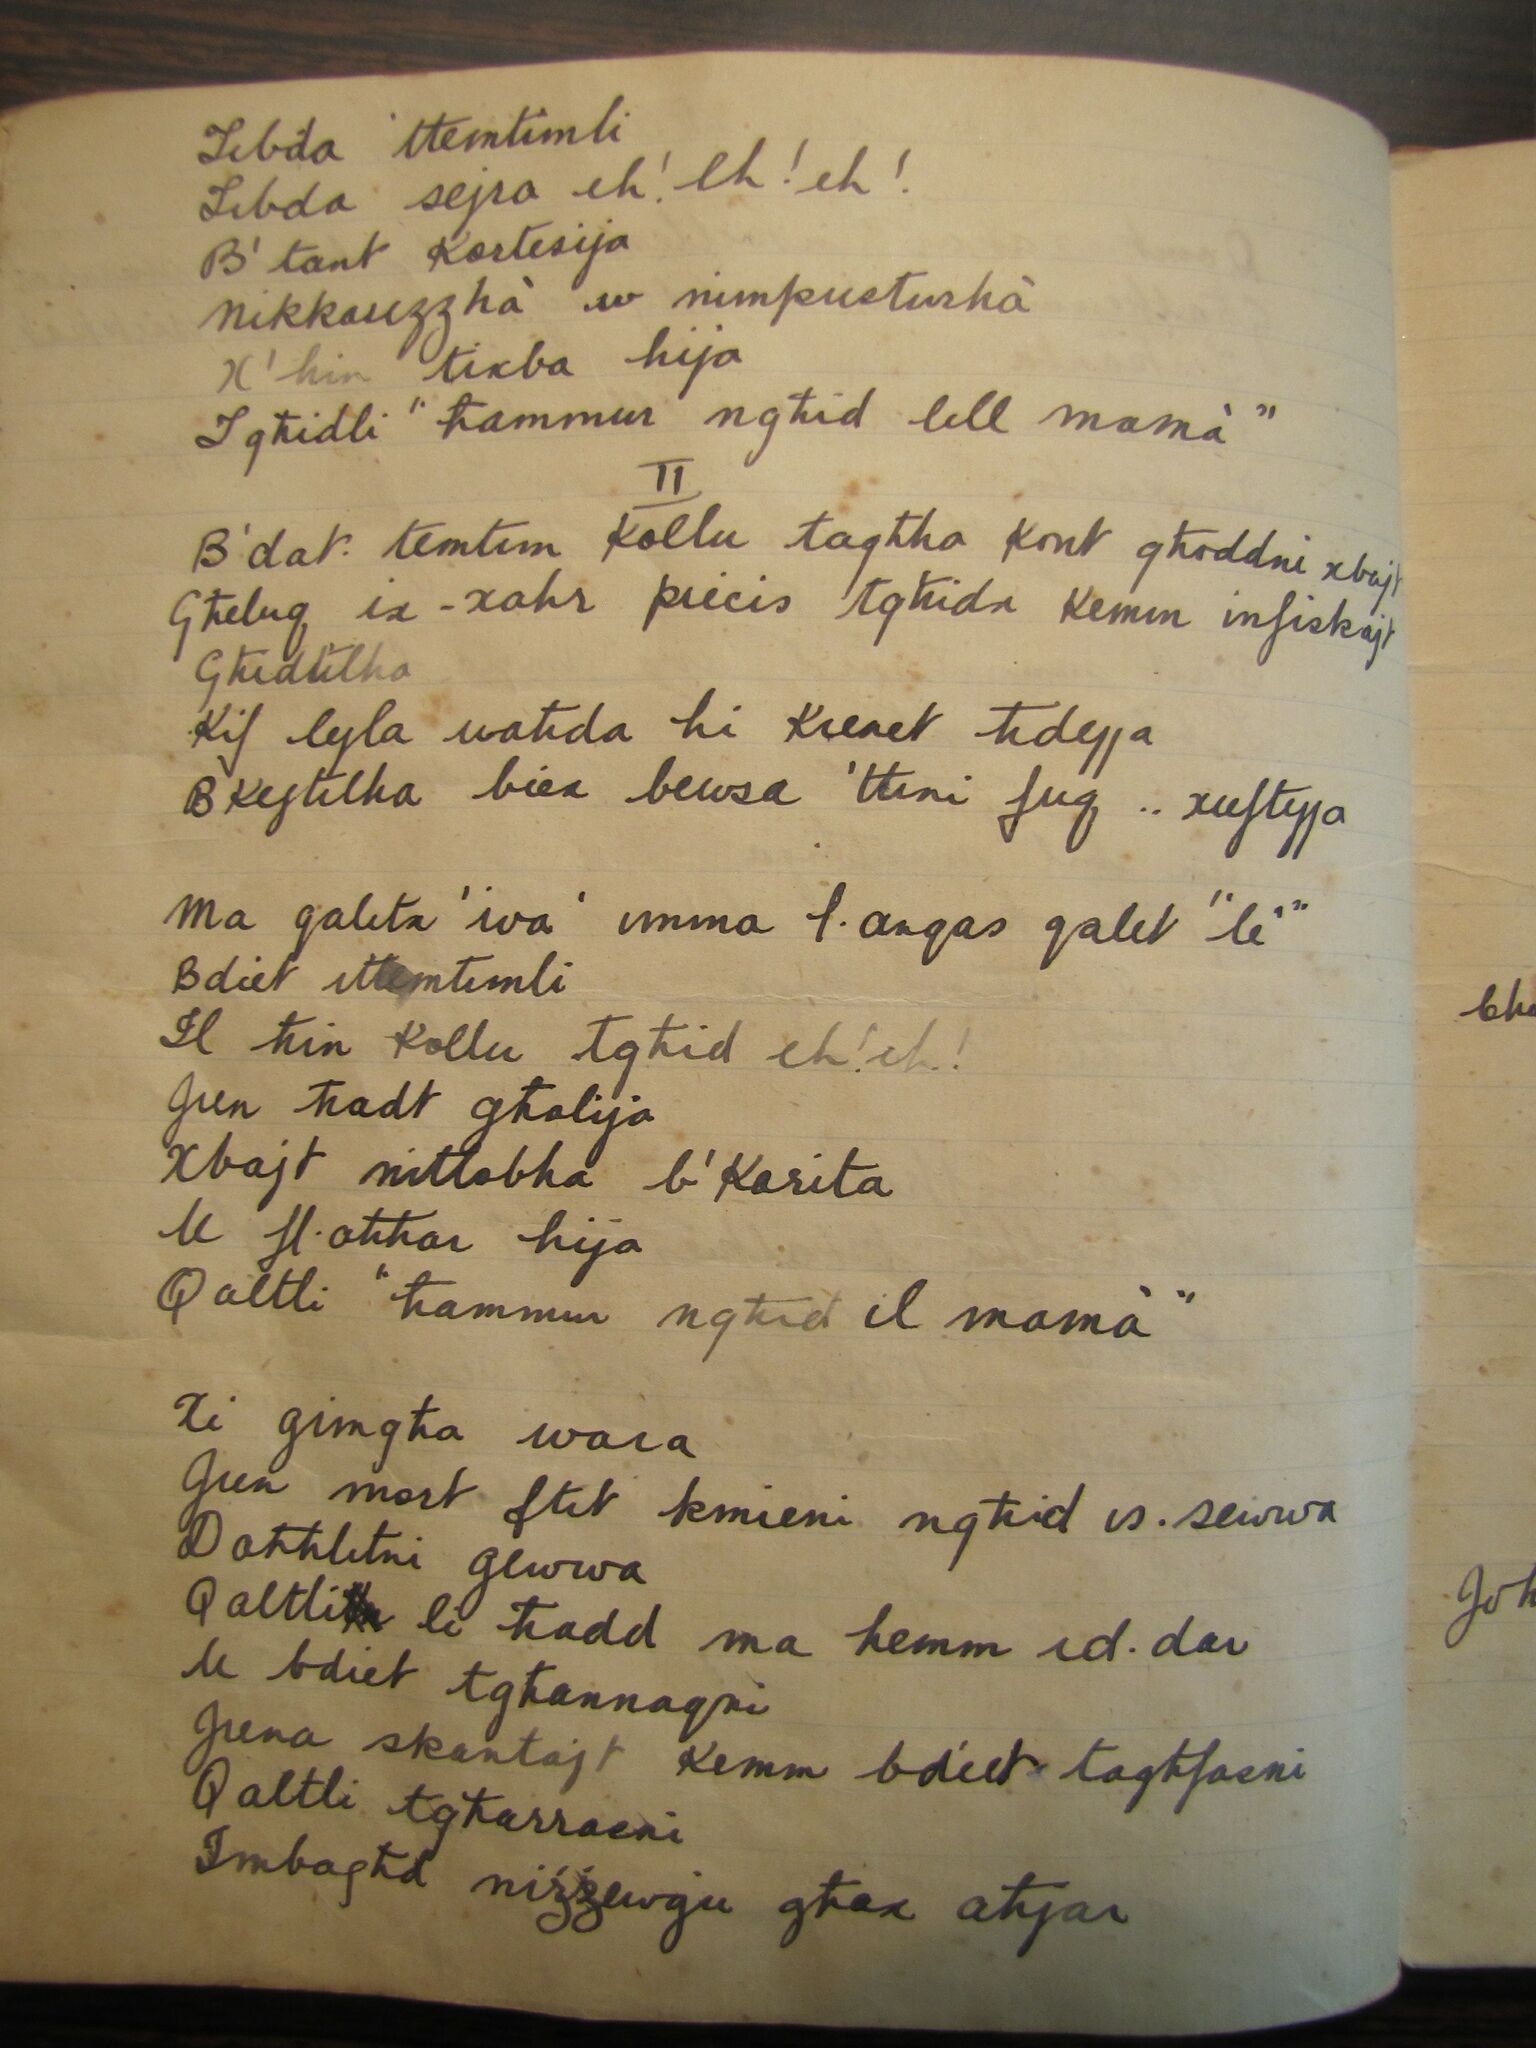 Tibda ttemtimli
Tibda sejra eh! eh! eh!
B'tant Kortesija
nikkouzzhà w nimpusturhà
X'hin tixba hija
Tgħidli "ħammur ngħid lill mamà"
II
B'dat temtim Kollu tagħha Kont għoddni xbajt
Għeluq ix-xahr preċis tgħidx Kemm infiskajt
Għidtilha
Kif lejla waħda hi Kienet ħdejja
Bkejtilha biex bewsa 'ttini fuq .. xuftejja
Ma qaletx 'iva' imma l.anqas qalet "le"
Bdiet ittemtimli
Il ħin Kollu tgħid eh! eh!
Jien ħadt għalija
Xbajt nitlobha b'Karita
U fl.aħħar hija
Qaltli "ħammur ngħid il mamà"
Xi gimgħa wara
Jien mort ftit kmieni ngħid is.sewwa
Daħħletni gewwa
Qaltli li ħadd ma hemm id.dar
U bdiet tgħannaqni
Jiena skantajt Kemm bdiet tagħfasni
Qaltli tgħarrasni
Imbagħd niżżewġu għax aħjar
bha
Joħ